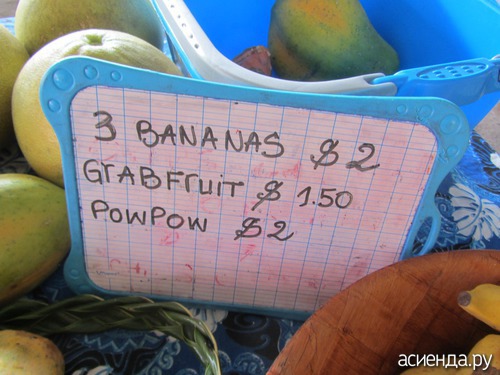 3 BANANAS $2
GraBFruit $ 1.50
POWPOW $2
асиенда.ру